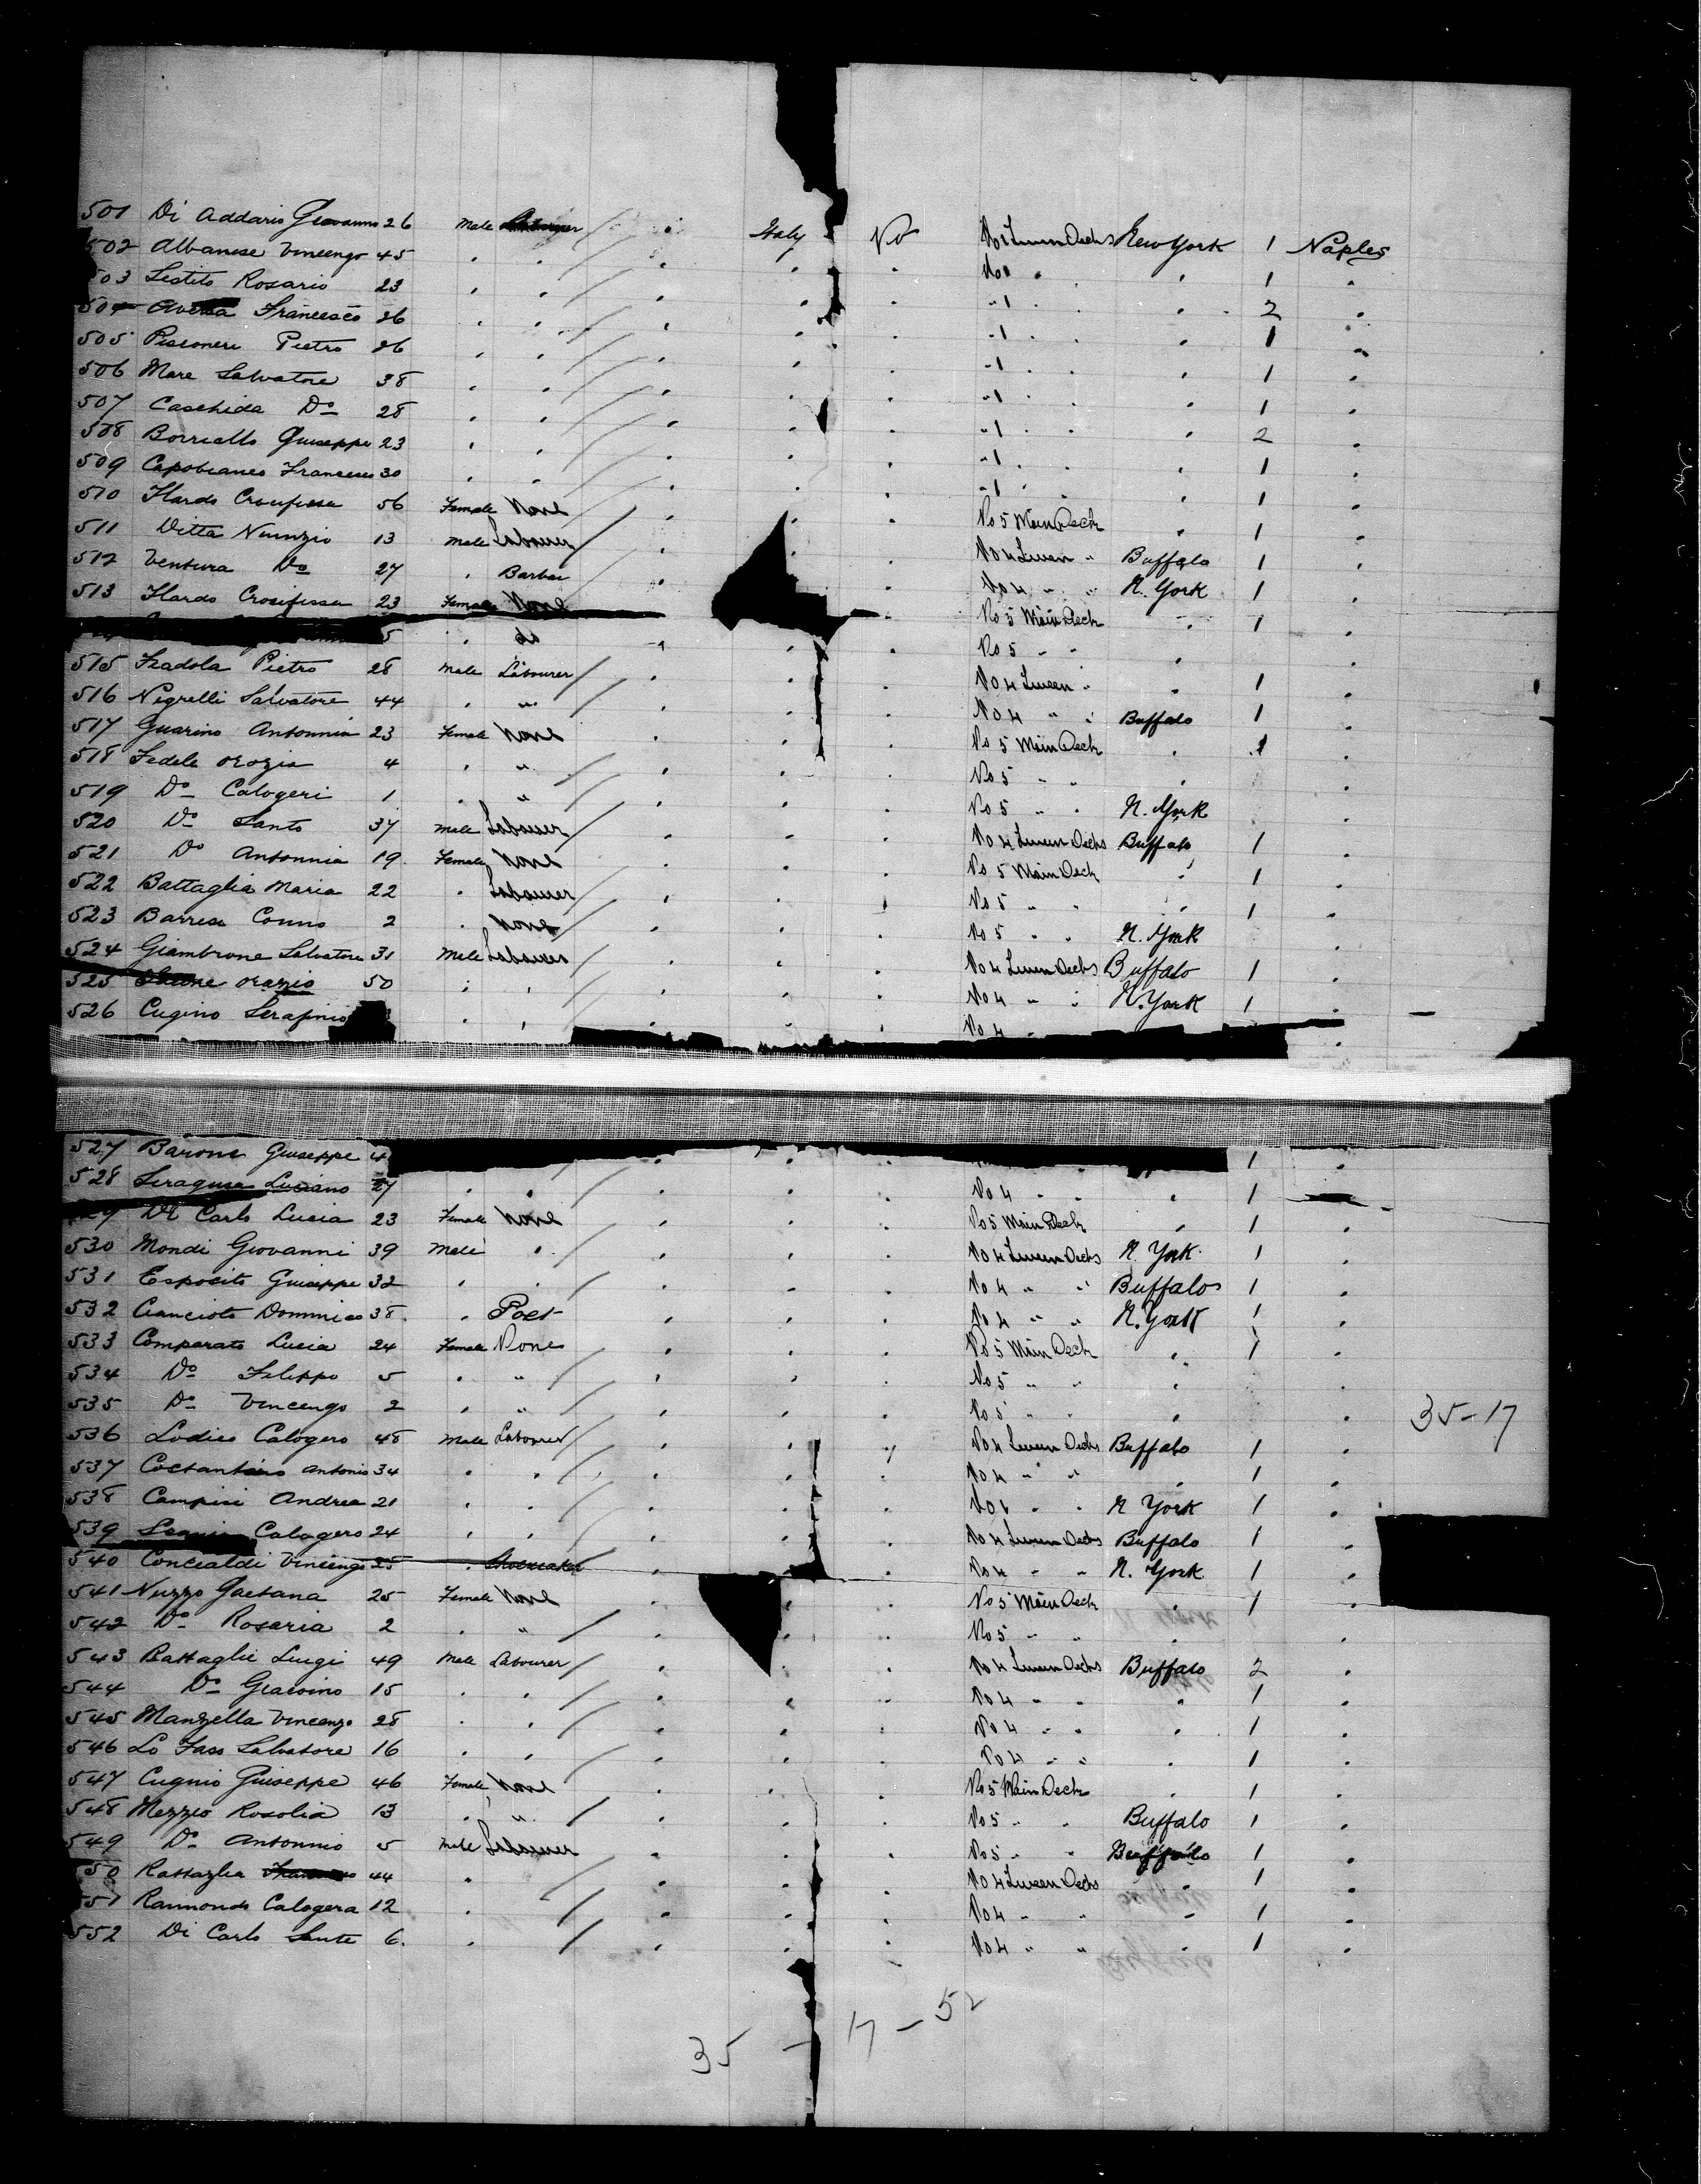 501 Di Addario Giovanni 26 Male Labourer Italy No No 1 Tween Decks New York 1 Naples
502 Albanese Vincenzo 45 " " " " No 1 " " 1 "
503 Sestito Rosario 23 " " " " " 1 " " 2 "
504 Francesco 26 " " " " " 1 " " 1 "
505 Piscioneri Pietro 26 " " " " " 1 " " 1 "
506 Mare Salvatore 38 " " " " " 1 " " 1 "
507 Caschida Do 28 " " " " " 1 " " 2 "
508 Borriello Giuseppe 23 " " " " " 1 " " 1 "
509 Capobianco Francesco 30 " " " " " 1 " " 1 "
510 Ilardo Crocifissa 56 Female None " " No 5 Main Deck " 1 "
511 Ditta Nunzio 13 Male Labourer " " No 4 Tween " Buffalo 1 "
512 Ventura Do 27 " Barber " " No 4 " " N. York 1 "
513 Ilardo Crocifissa 23 Female None " " No 5 Main Deck " 1 "
5 " do " " No 5 " " " "
515 Fradola Pietro 28 Male Labourer " " No 4 Tween " " 1 "
516 Negrelli Salvatore 44 " " " " No 4 " " Buffalo 1 "
517 Guarino Antonnia 23 Female None " " No 5 Main Deck " 1 "
518 Fedele Orozia 4 " " " " No 5 " " " "
519 Do Calogeri 1 " " " " No 5 " " N. York "
520 Do Santo 37 Male Labourer " " No 4 Tween Decks Buffalo 1 "
521 Do Antonnia 19 Female None " " No 5 Main Deck " 1 "
522 Battaglia Maria 22 " Labourer " " No 5 " " " 1 "
523 Barresa Conno 2 " None " " No 5 " " N. York "
524 Giambrone Salvatore 31 Male Labourer " " No 4 Tween Decks Buffalo 1 "
525 Orazio 50 " " " " No 4 " " N. York 1 "
526 Cugino Serafino " " " " No 4 "
527 Barone Giuseppe 4 " " " 1 "
528 Siragusa Luciano 27 " " " " No 4 " " " 1
Di Carlo Lucia 23 Female None " " No 5 Main Deck " 1 "
530 Mondi Giovanni 39 Male " " " No 4 Tween Decks N. York 1 "
531 Esposito Giuseppe 32 " " " " No 4 " " Buffalo 1 "
532 Cianciolo Domnico 38 " Poet " " No 4 " " N. York 1 "
533 Comparato Lucia 24 Female None " " No 5 Main Deck " 1 "
534 Do Filippo 5 " " " " No 5 " " " "
535 Do Vincenzo 2 " " " " No 5 " " " " 35-17
536 Lodico Calogero 48 Male Labourer " " No 4 Tween Decks Buffalo 1 "
537 Costantino Antonio 34 " " " " No 4 " " " 1 "
538 Campisi Andrea 21 " " " " No 4 " " N York 1 "
539 Calogero 24 " " " " No 4 Tween Decks Buffalo 1 "
540 Concialdi Vincenzo 25 " Shoemaker " " No 4 " " N. York 1 "
541 Nuzzo Gaetana 25 Female None " " No 5 Main Deck " 1 "
542 Do Rosaria 2 " " " " No 5 " " " "
543 Battaglia Luigi 49 Male Labourer " " No 4 Tween Decks Buffalo 2 "
544 Do Giacoino 15 " " " " No 4 " " " 1 "
545 Manzella Vincenzo 28 " " " " No 4 " " " 1 "
546 Lo Faso Salvatore 16 " " " " No 4 " " " 1 "
547 Cugnio Guiseppe 46 Female None " " No 5 Main Deck " 1 "
548 Mezzio Rosolia 13 " " " " No 5 " " Buffalo 1 "
549 Do Antonnio 5 Male Labourer " " No 5 " " Buffalo 1 "
50 Battaglia 44 " " " No 4 Tween Decks " 1 "
551 Raimondo Calogera 12 " " " No 4 " " " 1 "
552 Di Carlo Sante 6 " " " No 4 " " " 1 "
35 - 17 - 52